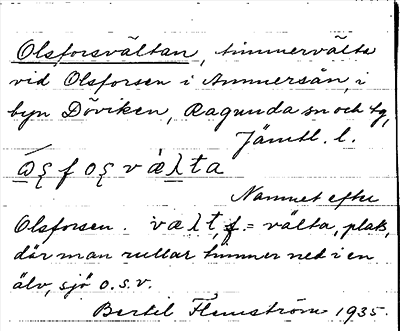 Olsforsvältan, timmervälta
vid Olsforsen i Ammersån, i
byn Döviken, Ragunda sn och tg,
Jämtl. l.
fos vælta
Namnet efter
Olsforsen. vælt, f. = välta, plats,
där man rullar timmer ned i en
älv, sjö o.s.v.
Bertil Flemström 1935.